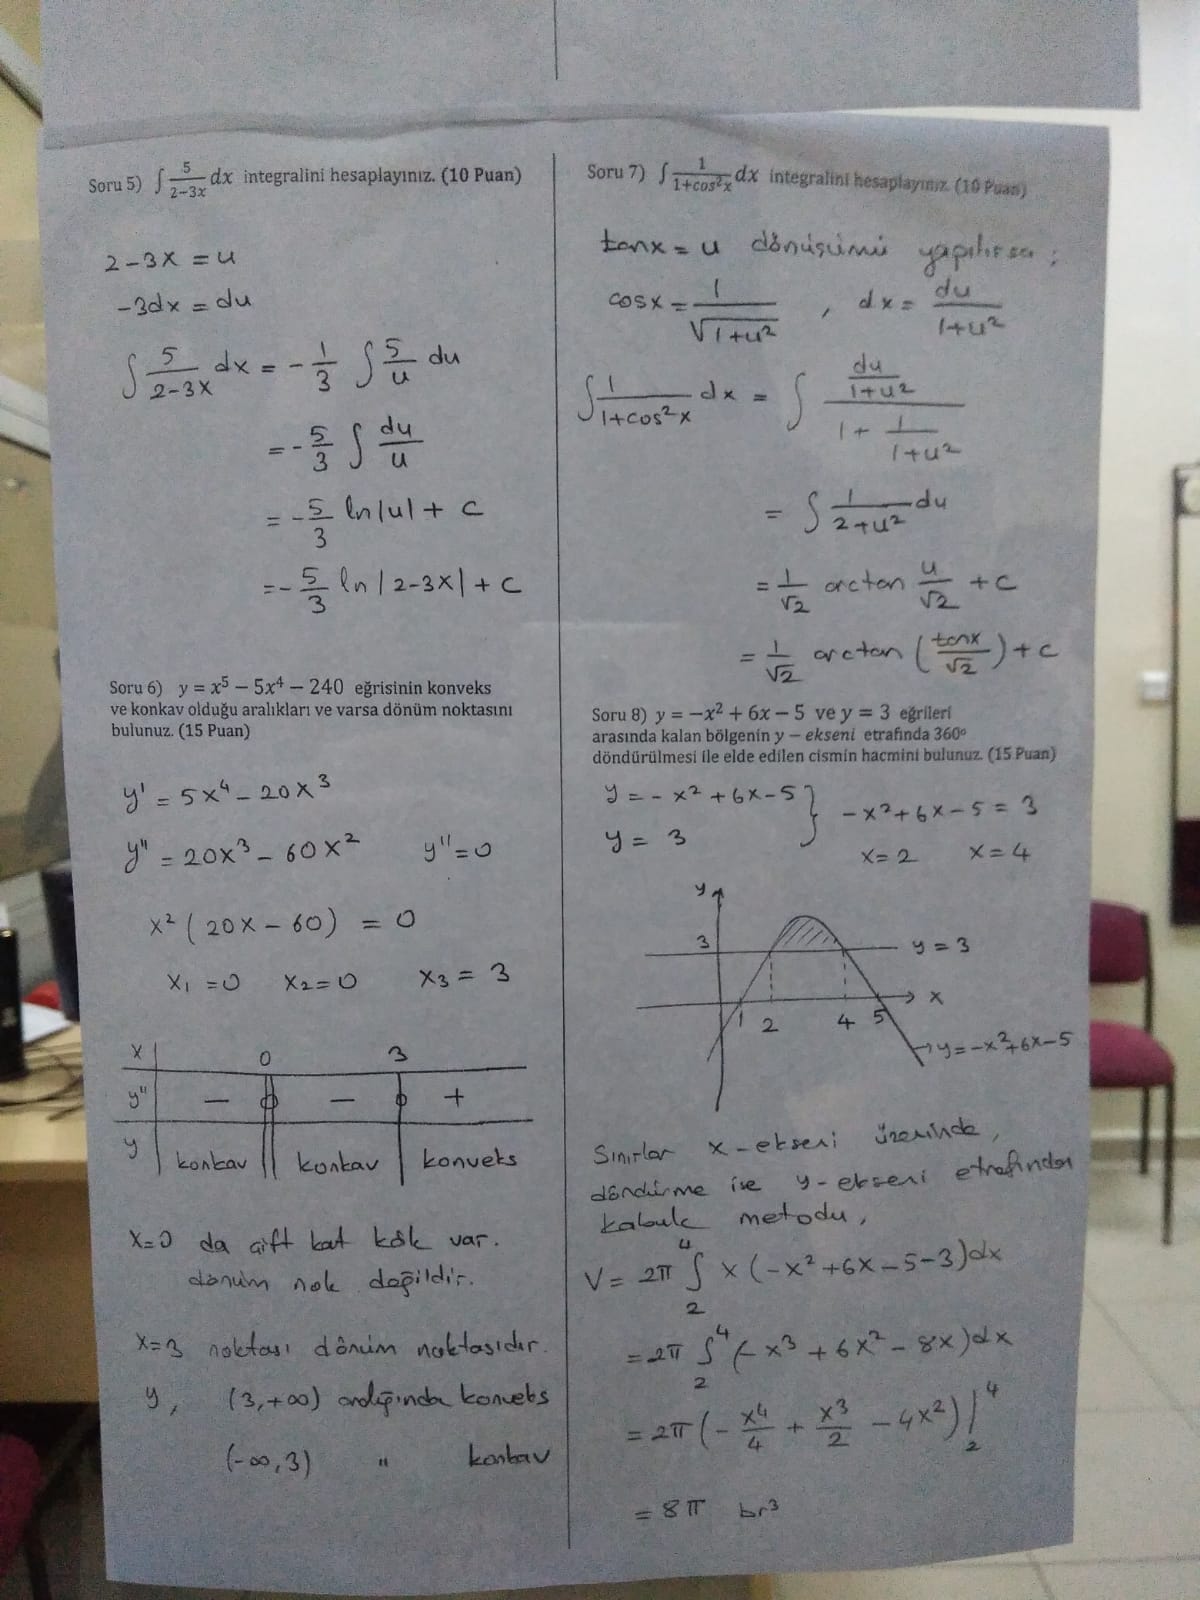 Soru 5) ∫ 5/(2−3x) dx integralini hesaplayınız. (10 Puan)
2-3x = u
-3dx = du
∫ 5/(2-3x) dx = - 1/3 ∫ 5/u du
= - 5/3 ∫ du/u
= - 5/3 ln|u| + c
= - 5/3 ln|2-3x| + c
Soru 6) y = x⁵ − 5x⁴ − 240 eğrisinin konveks
ve konkav olduğu aralıkları ve varsa dönüm noktasını
bulunuz. (15 Puan)
y' = 5x⁴ - 20x³
y'' = 20x³ - 60x² y''=0
x² (20x - 60) = 0
x₁ = 0 x₂ = 0 x₃ = 3
x 0 3
y'' - - +
y konkav konkav konveks
x=0 da çift kat kök var.
dönüm nok değildir.
x=3 noktası dönüm noktasıdır.
y, (3,+∞) aralığında konveks
(-∞,3) " konkav
Soru 7) ∫ 1/(1+cos²x) dx integralini hesaplayınız. (10 Puan)
tanx = u dönüşümü yapılırsa;
cosx = 1/√(1+u²) , dx = du/(1+u²)
∫ 1/(1+cos²x) dx = ∫ (du/(1+u²))/(1 + 1/(1+u²))
= ∫ 1/(2+u²) du
= 1/√2 arctan u/√2 + c
= 1/√2 arctan (tanx/√2) + c
Soru 8) y = −x² + 6x − 5 ve y = 3 eğrileri
arasında kalan bölgenin y − ekseni etrafında 360°
döndürülmesi ile elde edilen cismin hacmini bulunuz. (15 Puan)
y = - x² + 6x - 5 } -x² + 6x - 5 = 3
y = 3 x = 2 x = 4
y
3 y = 3
x
1 2 4 5
y = -x²+6x-5
Sınırlar x-ekseni üzerinde,
döndürme ise y-ekseni etrafından
kabuk metodu,
V = 2π ∫₂⁴ x (-x² + 6x - 5 - 3) dx
= 2π ∫₂⁴ (- x³ + 6x² - 8x) dx
= 2π (- x⁴/4 + x³/2 - 4x²) |₂⁴
= 8π br³